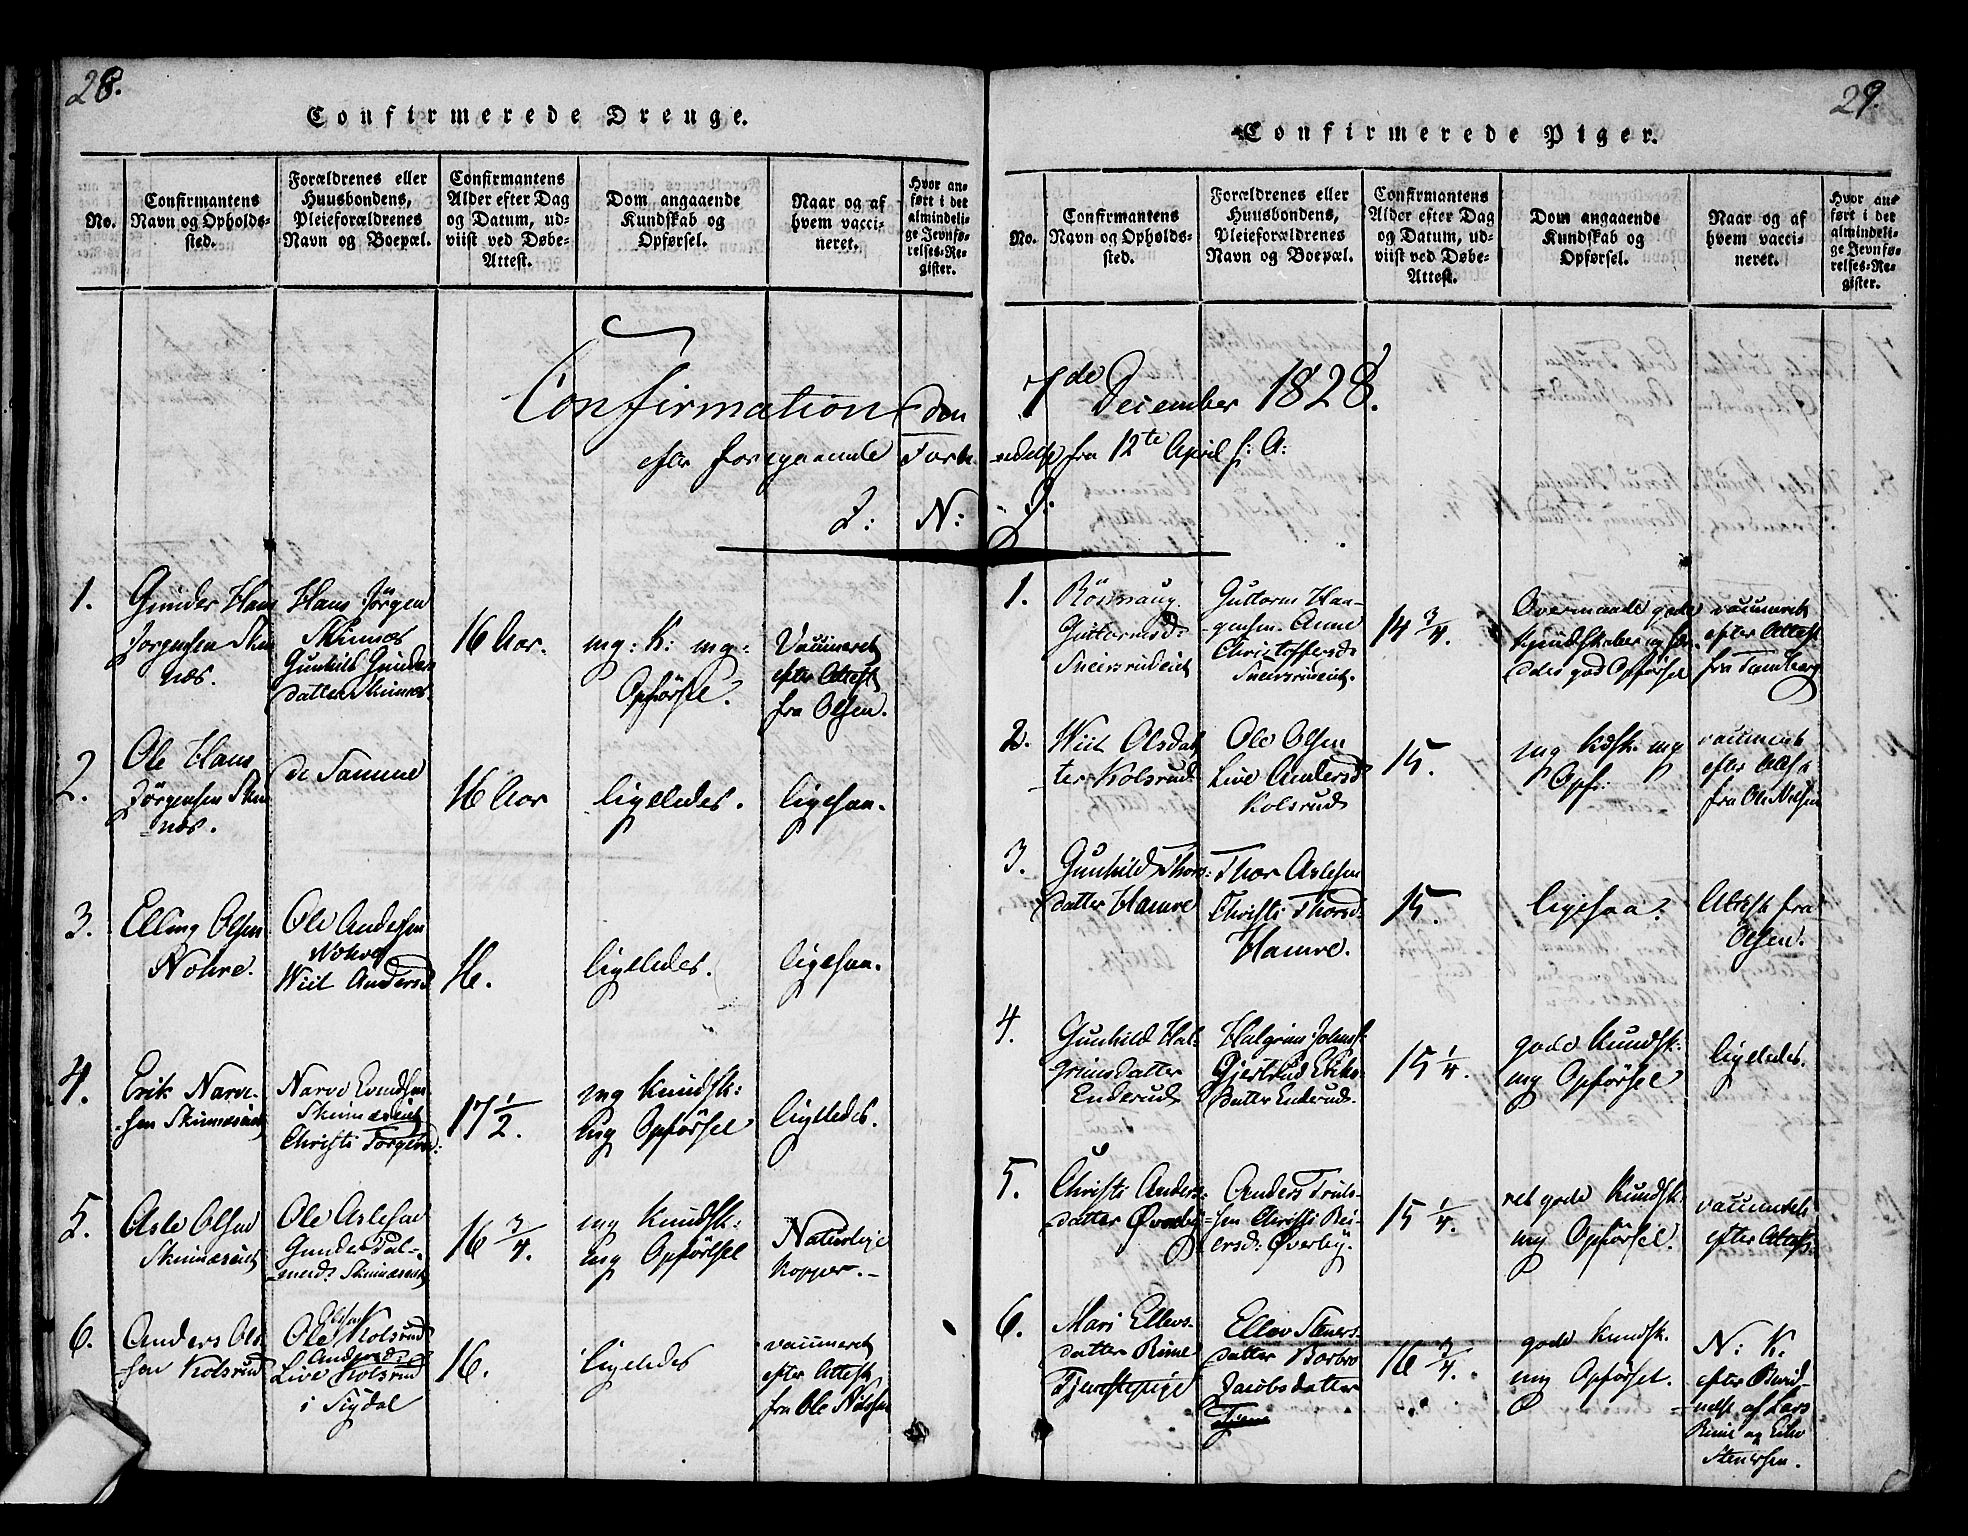 28.
Confirmerede Drenge.
No.
Confirmantens
Navn og Opholds-
sted.
Forældrenes eller
Huusbondens,
Pleieforældrenes
Navn og Boepæl.
Confirmantens
Alder efter Dag
og Datum, ud-
viist ved Døbe-
Attest.
Dom angaaende
Kundskab og
Opførsel.
Naar og af
hvem vacci-
neret.
Hvor an-
ført i det
almindeli-
ge Jevnfø-
relses-Re-
gister.
Confirmation den
efter foregaaende
J: N:
1.
Gunder Hans
Jørgensen Skin
næs.
Hans Jörgen
Skinnæs
Gunhild Gunders
datter Skinnæs
16 Aar.
mg: K: mg:
Opförsel.
Vaccineret
efter Attest
fra Olsen.
2.
Ole Hans
Jørgensen Skin
næs.
de Samme
16 Aar
ligeledes.
ligesaa.
3.
Elling Olsen
Nohre.
Ole Andersen
Nohre
Wiit Andersd
16.
ligeledes.
ligesaa.
4.
Erik Narve-
sen Skinnæseiet
Narve Evindsen
Skinnæseiet
Christi Torgersd:
17 1/2.
mg Kundsk:
mg Opförsel
ligeledes.
5.
Asle Olsen
Skinnæseiet
Ole Aslesen
Gunder Pal-
mersd: Skinnæseiet
16 3/4.
mg Kundsk:
mg Opförsel
Naturlige
Kopper.-
6.
Anders Ols
sen Kolsrud
Olsen
Ole Kolsrud
Andersd:
Live Kolsrud
i Sigdal
16.
ligeledes
vaccineret
efter Attest
fra Ole Nilsen
29.
Confirmerede Piger.
No.
Confirmantens
Navn og Opholds-
sted.
Forældrenes eller
Huusbondens,
Pleieforældrenes
Navn og Boepæl.
Confirmantens
Alder efter Dag
og Datum, ud-
viist ved Døbe-
Attest.
Dom angaaende
Kundskab og
Opførsel.
Naar og af
hvem vacci-
neret.
Hvor an-
ført i det
almindeli-
ge Jevnfø-
relses-Re-
gister.
7de December 1828.
fra 12te April f: A:
1.
Rönnaug
Guttormsd:
Sneisrudeiet
Guttorm Haa-
gensen. Anne
Christoffersd:
Sneisrudeiet.
14 3/4.
Overmaade gode
Kundskaber og
god Opförsel
vaccineret
efter Attest
fra Tandberg
2.
Wiit Olsdat
ter Kolsrud
Ole Olsen
Live Andersd
Kolsrud
15.
mg Kdsk: mg
Opf:
vaccineret
efter Attest
fra Ole Nilsen
3.
Gunhild Thors:
datter Hamre
Thor Aslesen
Christi Thorsd:
Hamre.
15.
ligesaa.
Attest fra
Olsen.
4.
Gunhild Hal-
grimsdatter
Enderud
Halgrim Johns:
Gjertrud Eriks-
datter Enderud.
15 1/4.
gode Kundsk:
mg Opförsel
ligeledes.
5.
Christi Anders:
datter Øverby
Anders Truls-
sen Christi Rei-
ersd: Øverby.
15 1/4.
ret gode Kundsk:
mg Opförsel.
vaccineret
efter Attest.
6.
Mari Ellevs-
datter Rime
Tjenestepige
Ellev Steners-
datter Barbro
Jacobsdatter
16 3/4.
gode Kundsk.
mg Opförsel.
N: K.
efter
af Lars
Rime og
Stenersen.